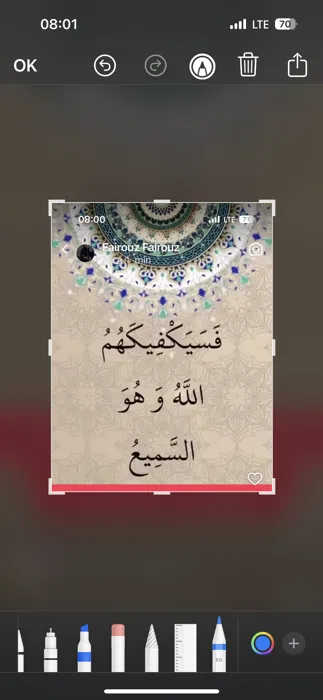 08:01 LTE 70
OK
08:00 LTE 71
Fairouz Fairouz
min
فَسَيَكْفِيكَهُمُ
اللَّهُ وَ هُوَ
السَّمِيعُ
50